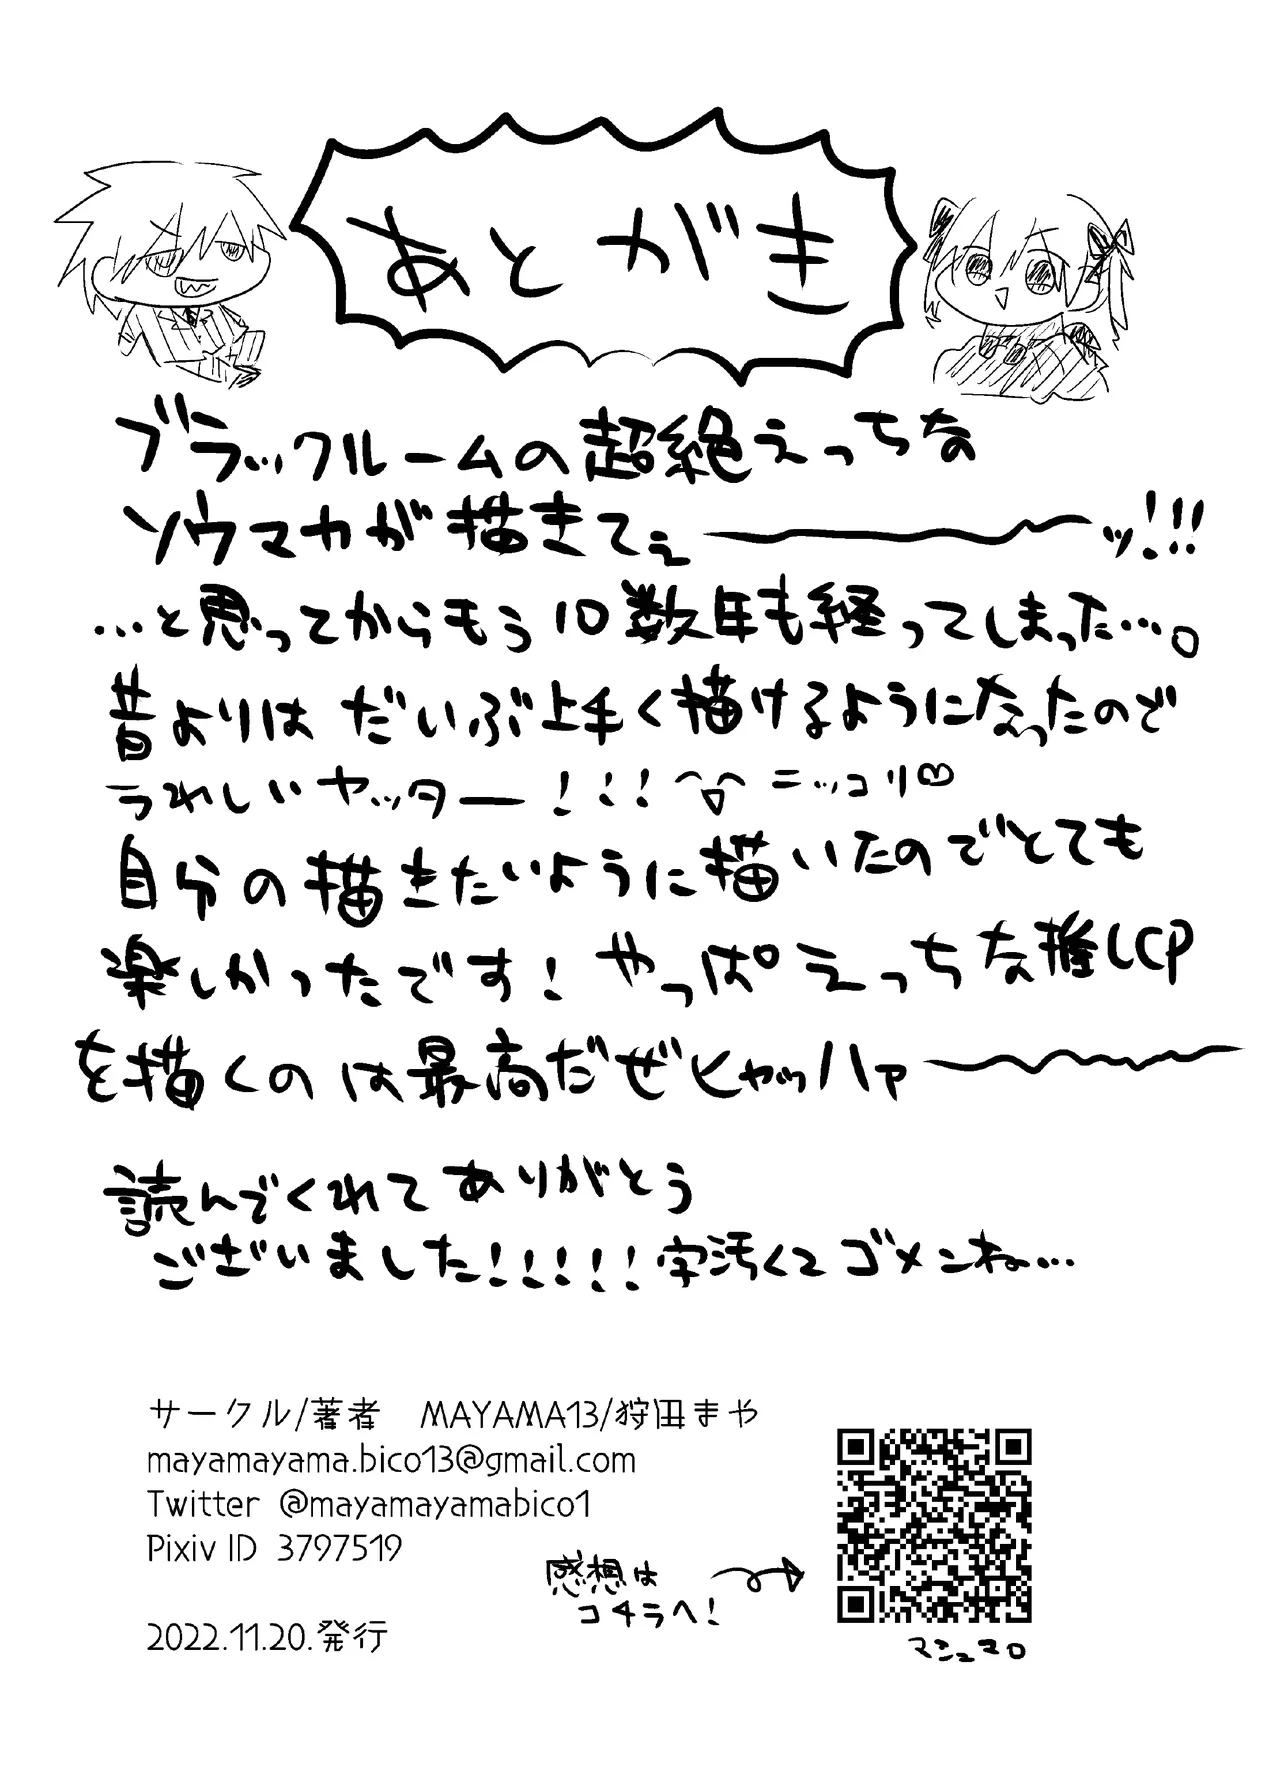 あとがき
ブラックルームの超絶えっちな
ソウマカが描きてぇ――ッ!!!
…と思ってからもう10数年も経ってしまった…。
昔よりはだいぶ上手く描けるようになったので
うれしいヤッター!!! ニッコリ♡
自分の描きたいように描いたのでとても
楽しかったです!やっぱえっちな推しCP
を描くのは最高だぜヒャッハァ――
読んでくれてありがとう
ございました!!!!!字汚くてゴメンね…
サークル/著者 MAYAMA13/狩田まや
mayamayama.bico13@gmail.com
Twitter @mayamayamabico1
Pixiv ID 3797519
感想は
コチラへ!
2022.11.20.発行
マシュマロ